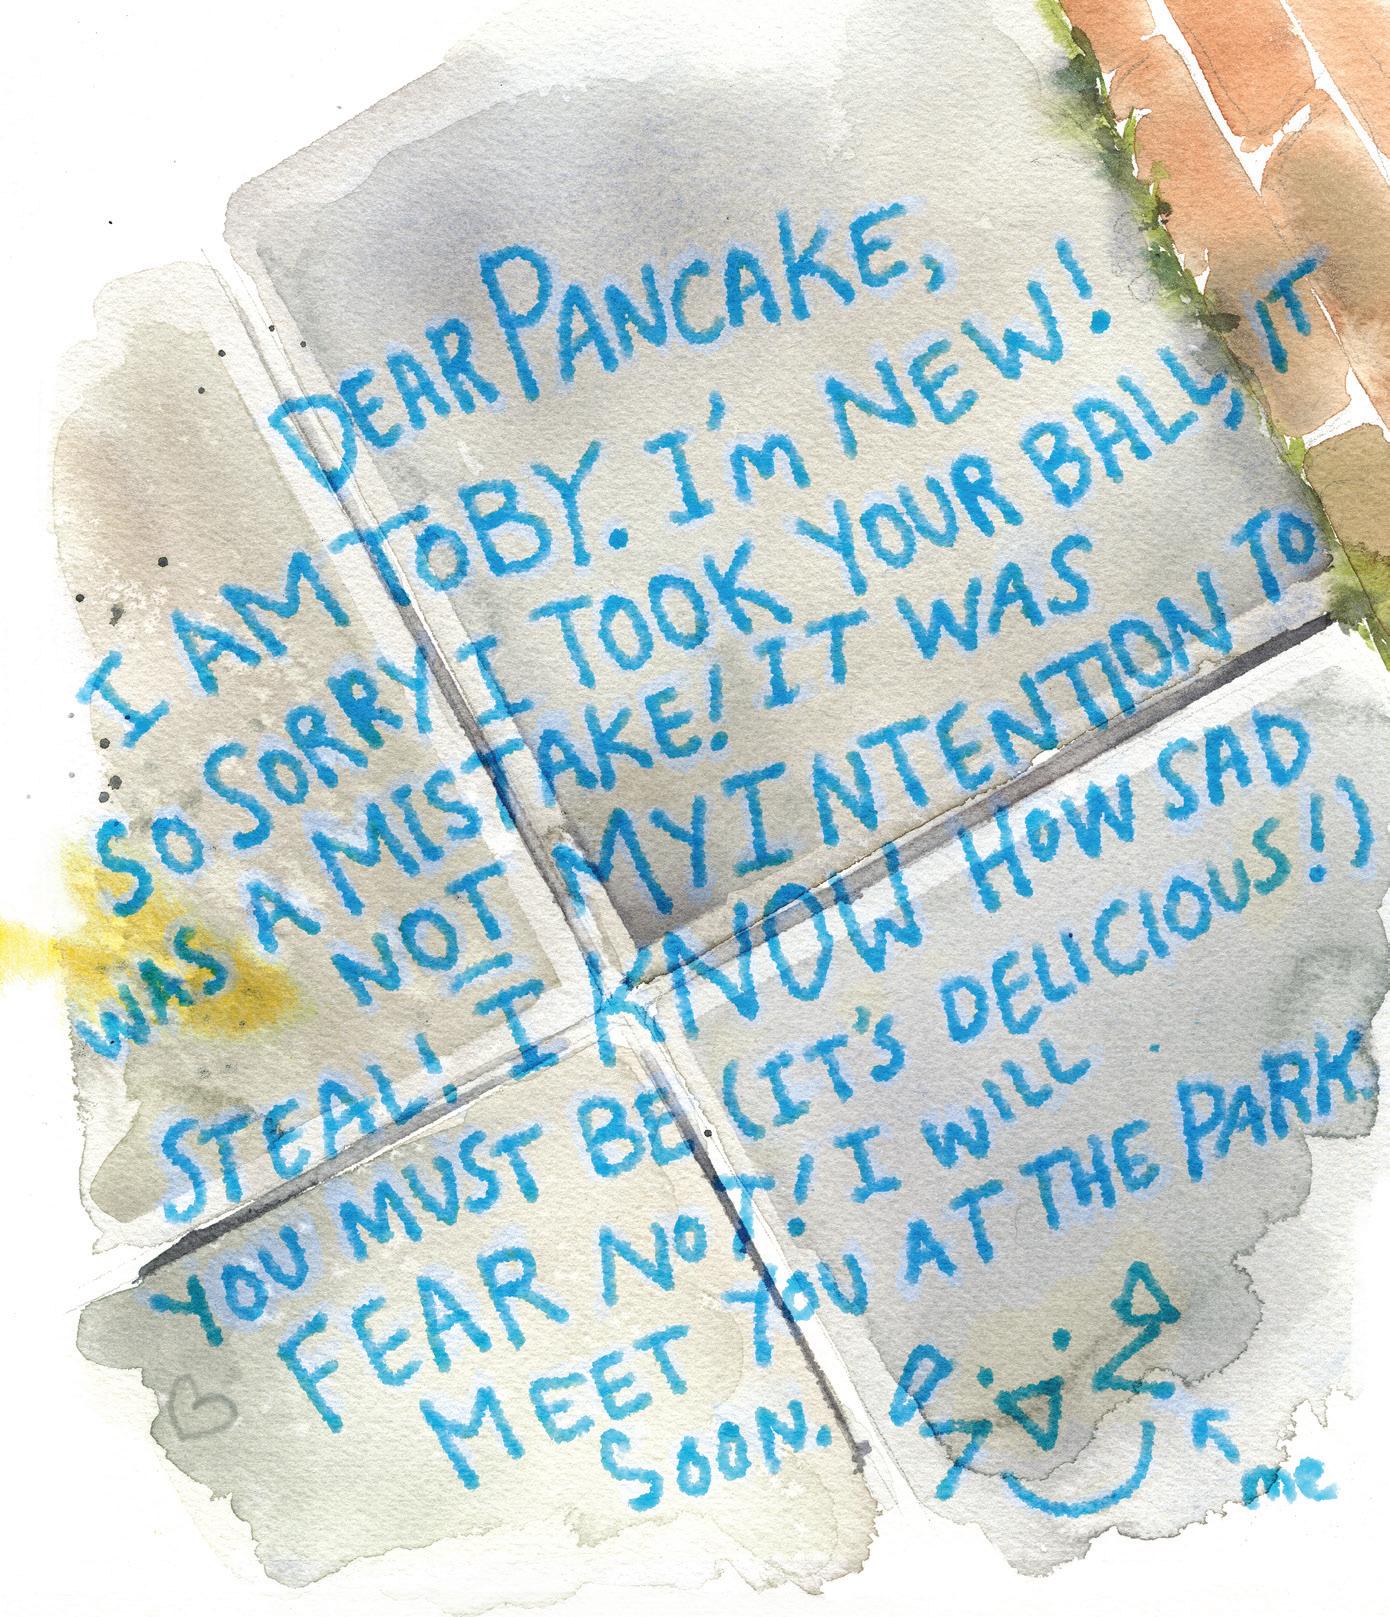 DEAR PANCAKE,
I AM TOBY. I'm NEW!
SO SORRY I TOOK YOUR BALL, IT
WAS A MISTAKE! IT WAS
NOT MY INTENTION TO
STEAL! I KNOW HOW SAD
YOU MUST BE (IT'S DELICIOUS!)
FEAR NOT! I WILL
MEET YOU AT THE PARK
SOON.
me